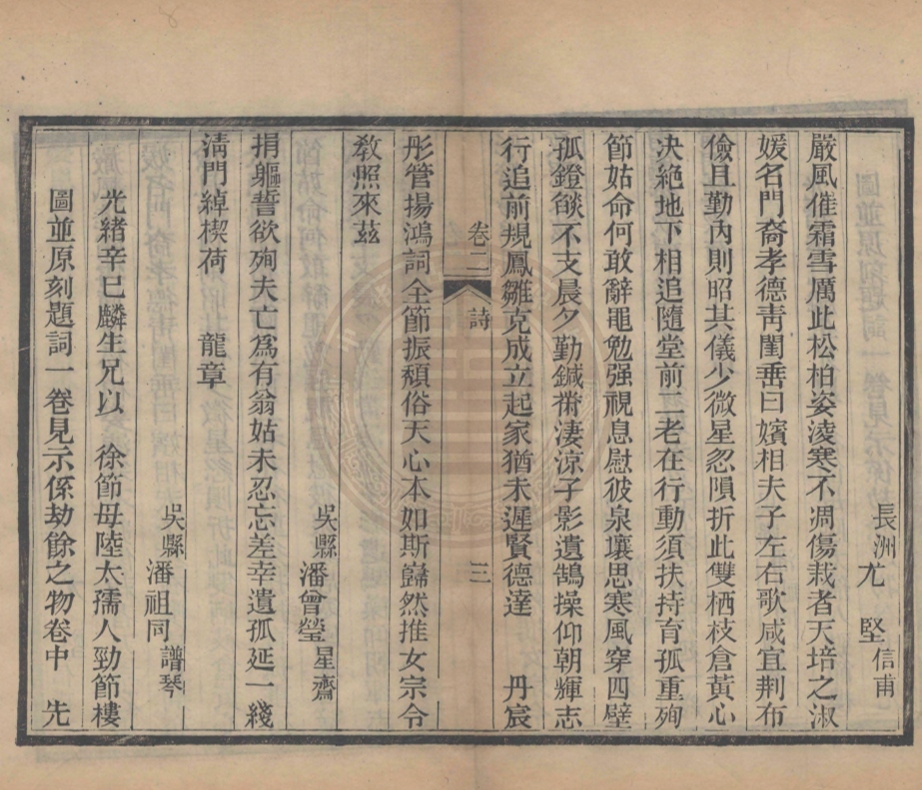 長洲尤 堅信甫
嚴風催霜雪厲此松柏姿淩寒不凋傷栽者天培之淑
媛名門裔孝德靑閨垂曰嬪相夫子左右歌咸宜荆布
儉且勤內則昭其儀少微星忽隕折此雙栖枝倉黃心
決絕地下相追隨堂前二老在行動須扶持育孤重殉
節姑命何敢辭黽勉强視息慰彼泉壤思寒風穿四壁
孤鐙燄不支晨夕勤鍼黹淒涼孑影遺鵠操仰朝輝志
行追前規鳳雛克成立起家猶未遲賢德達 丹宸
卷二 詩 三
彤管揚鴻詞全節振頹俗天心本如斯巋然推女宗令
敎照來茲
吳縣潘曾瑩星齋
捐軀誓欲殉夫亡爲有翁姑未忍忘差幸遺孤延一綫
淸門綽楔荷 龍章
吳縣潘祖同譜琴
光緒辛巳麟生兄以 徐節母陸太孺人勁節樓
圖並原刻題詞一卷見示係劫餘之物卷中 先